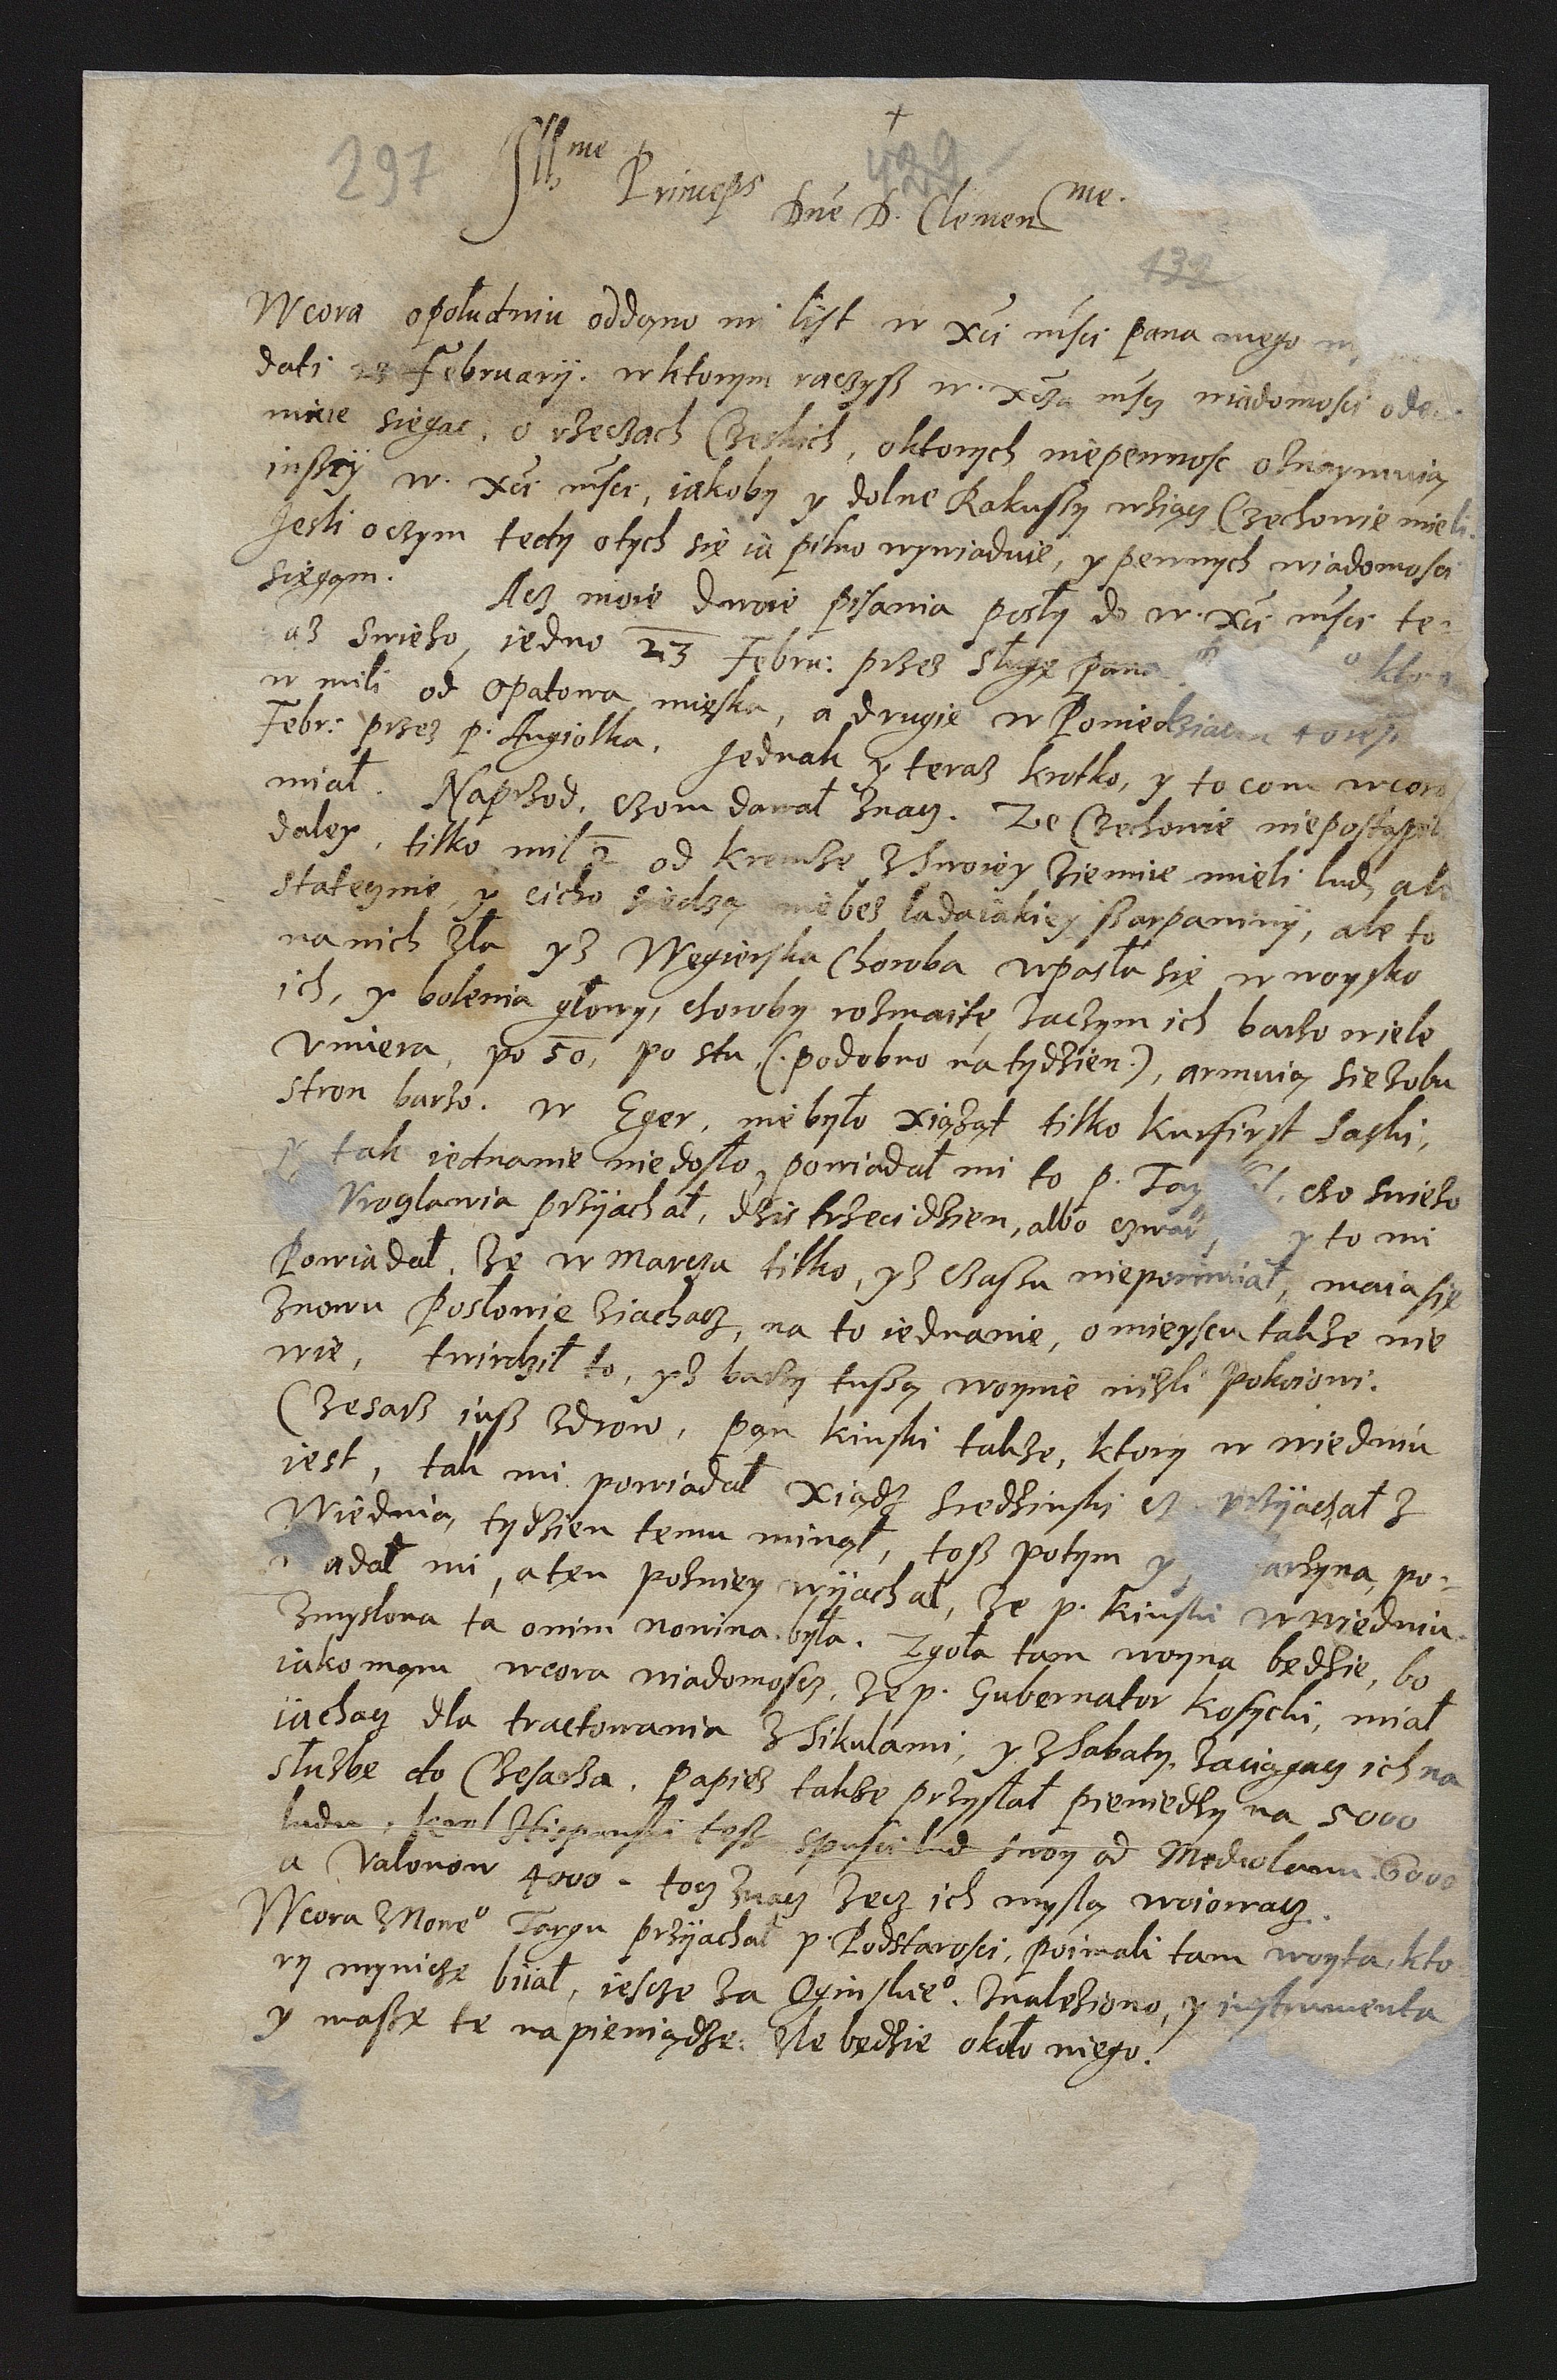 +
297 429
Illme Princeps
Dne D. Clemenme.
132
Wcora opołudniu oddąno mi list w Xci msci pana mego
dati 23 February. wktorym raczysz w. Xcza mscz wiadomosci ode
mnie siegac, o rzeczach Czeskich, oktorych niepewnosc oznaymuią
inszy w. Xci msci, iakoby y dolne Rakuszy wziącz Czechowie mieli.
Jesli oczym tedy otych się ia pilno wywiaduie, y pewnych wiadomosci
sięgąm. Acz moie dwoie pisania poszły do w. Xci msci te-
az swiezo, iedno 23 Febru: przez sługę pana
w mili od Opatowa mięska, a drugie w Poniedziałek
Febr: przez p. Angiolka. Jednak y teraz krotko, y to com wcora
miał. Naprzod, czom dawał znacz. Ze Czechowie niepostąpili
daley, tilko mil 2 od kremze zswoiey ziemie mieli lud, ale
statecznie, y cicho siedzą niebez ladaiakiey szarpaniny, ale to
nanich zła yz Węgierska Choroba wpasła się w woysko
ich, y bolenia głowy, choroby rozmaite, zaczym ich barzo wiele
vmiera, po 50, po stu, (podobno na tydzien), armuią sie zobu
stron barzo. w Eger, niebyło xiążąt tilko kurfirst Saski,
Y tak iednanie niedoszło, powiadał mi to p. czo swiezo
Wroglawia przyiachał, dzis trzeci dzien, albo y to mi
Powiadał, ze w marcza tilko, yz czassu niepomniał, maia się
znowu Posłowie ziachacz, na to iednanie, omieyscu takze nie
wie, twirdził to, yz barzy tuszą woynie nizli Pokoiowi.
Czesarz iusz zdrow, pąn kinski takze, ktory w wiedniu
iest, tak mi powiadał Xiądz Siedzinski przyiachał z
Wiednia, tydzien temu minął, tosz potym y arzyna, po-
adał mi, aten pozniey wyiachał, ze p. kinski w wiedniu.
zmyslona ta onim nowina była. Zgoła tam woyna będzie, bo
iako mąm wcora wiadomoscz, ze p. Gubernator kosycki, miał
iachacz dla tractowania zSikulami, y zSabaty, zaciągacz ich na
służbe do Czesarza. Papiez takze przysłał pieniedzy na 5000
ludu, krol Hispanski tosz spusci lud swoy od Mediolanu 6000
a Valonow 4000 - tocz znacz zecz ich myslą woiowacz.
Wcora zNoweo Targu przyiachał p. Podstarosci, poimali tam woyta, kto
ry mynicze biiał, iescze za Oginskieo. znaleziono, y instrumenta
y masse te napieniądze. Zle będzie około niego.